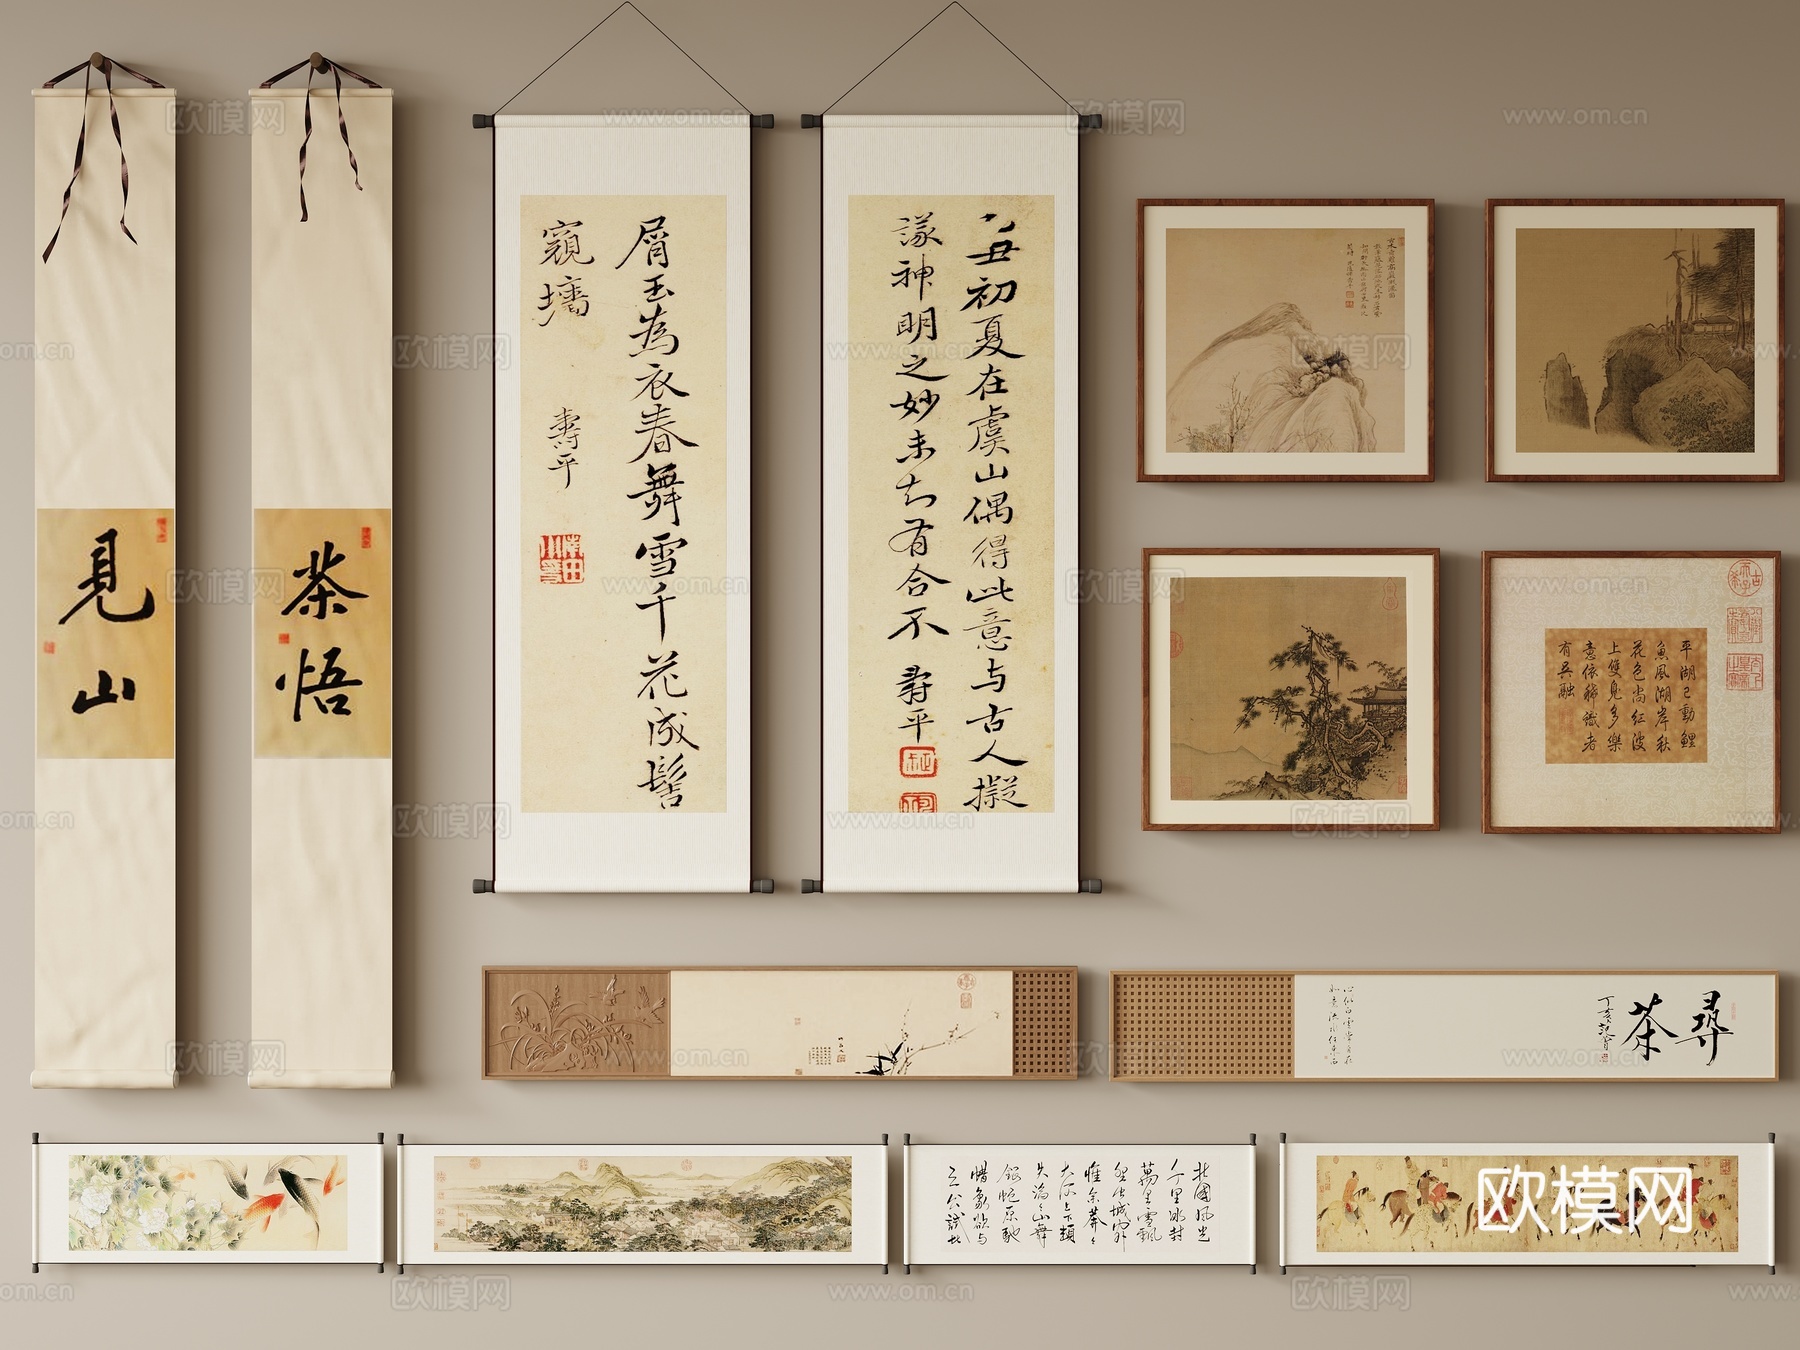 見山
茶悟
屑玉為衣春舞雪千花成髻
窺墻
壽平
丑初夏在虞山偶得此意与古人擬
議神明之妙未知有合不 壽平
平湖已動鯉
魚風湖岸秋
花色尚紅波
上雙鳧多樂
意依稀識者
有吳融
尋茶
北國風光
千里冰封
萬里雪飄
望長城內外
惟余莽莽
大河上下頓
失滔滔山舞
銀蛇原馳
蜡象欲与
天公試比
欧模网
www.om.cn